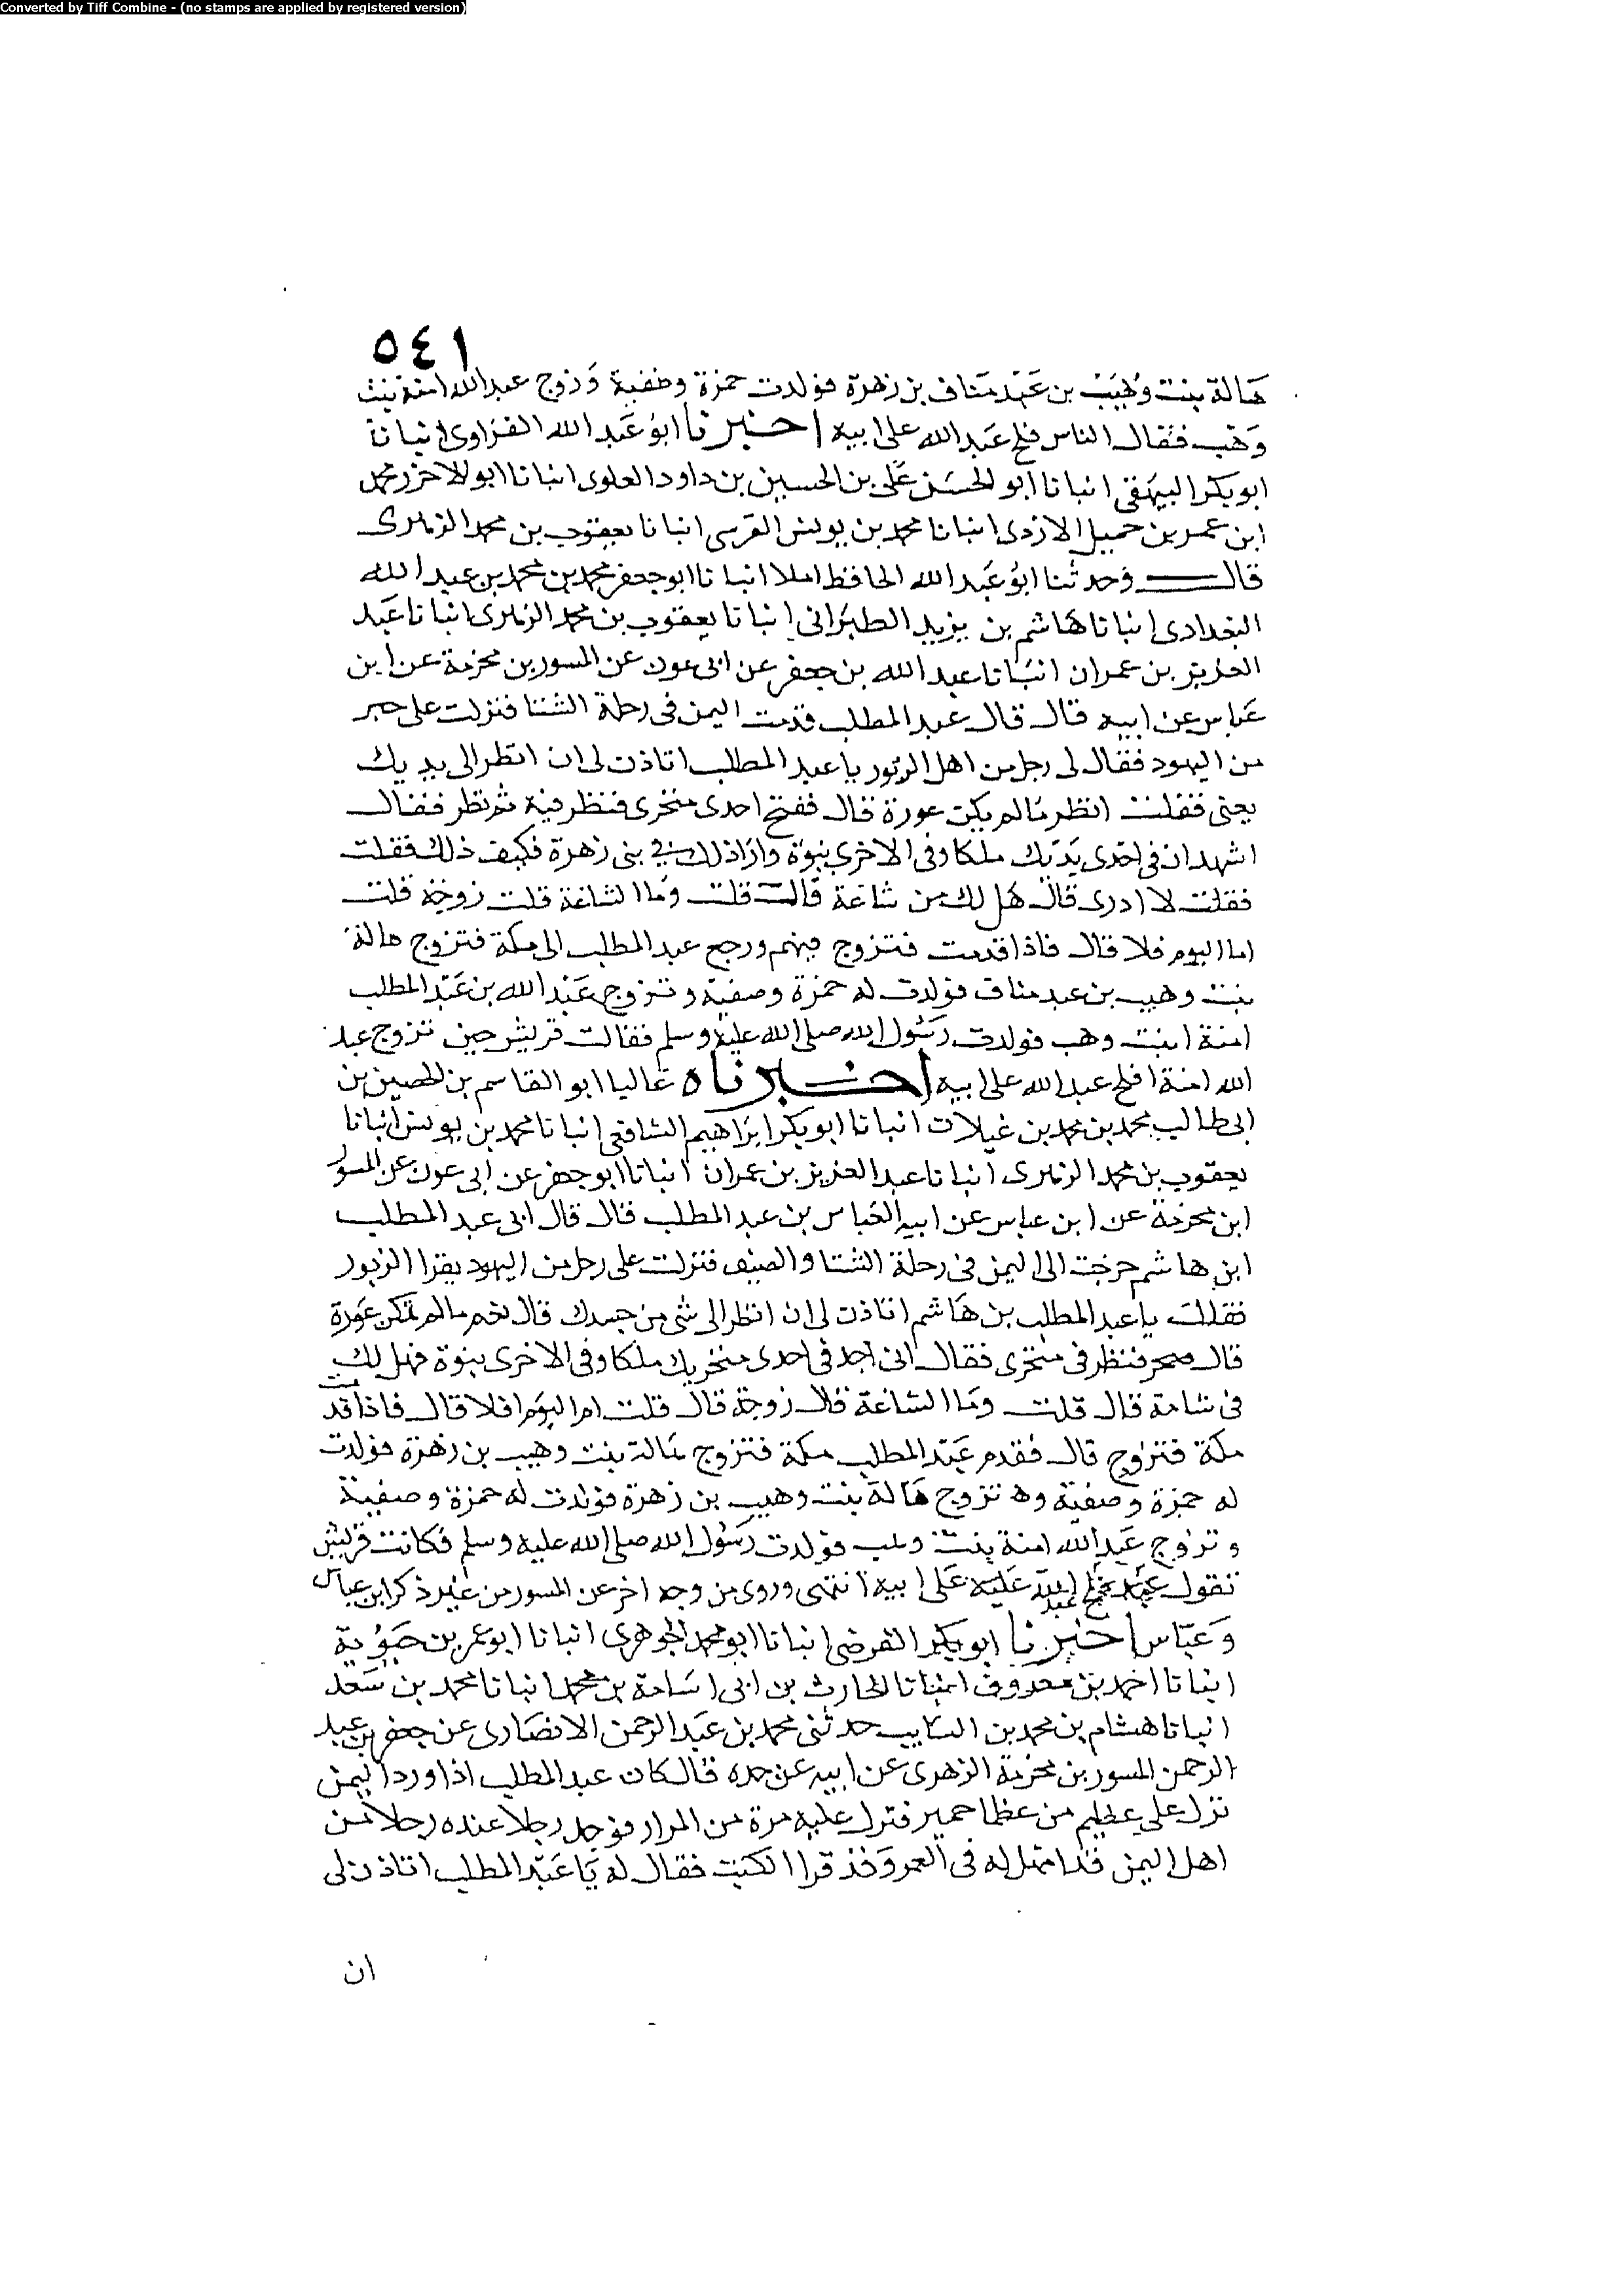 Converted by Tiff Combine - (no stamps are applied by registered version)
٥٤١
هالة بنت وهيب بن عبد مناف بن زهرة فولدت حمزة وصفية وزوج عبد الله امنة بنت
وهب فقال الناس فلج عبد الله على ابيه اخبرنا ابو عبد الله الفراوى انبانا
ابو بكر البيهقى انبانا ابو الحسن على بن الحسين بن داود العلوى انبانا ابو الاحرز محمد
ابن عمر بن جميل الازدى انبانا محمد بن يونس القرسى انبانا يعقوب بن محمد الزهرى
قال وحدثنا ابو عبد الله الحافظ املا انبانا ابو جعفر محمد بن محمد بن عبد الله
البغدادى انبانا هاشم بن يزيد الطبرانى انبانا يعقوب بن محمد الزهرى انبانا عبد
العزيز بن عمران انبانا عبد الله بن جعفر عن ابى عون عن المسور بن مخرمة عن ابن
عباس عن ابيه قال قال عبد المطلب قدمت اليمن فى رحلة الشتا فنزلت على حبر
من اليهود فقال لى رجل من اهل الزبور يا عبد المطلب اتاذن لى ان انظر الى بديك
يعنى فقلت انظر مالم يكن عورة قال ففتح احدى منخرى فنظر فيه ثم نظر فقال
اشهد ان فى احدى يديك ملكا وفى الاخرى نبوة وارا ذلك فى بنى زهرة فكيف ذلك فقلت
فقلت لا ادرى قال هل لك من شاعة قال قلت وما الشاعة قلت زوجة قلت
اما اليوم فلا قال فاذا قدمت فتزوج فيهم ورجع عبد المطلب الى مكة فتزوج هالة
بنت وهيب بن عبد مناف فولدت له حمزة وصفية وتزوج عبد الله بن عبد المطلب
امنة ابنت وهب فولدت رسول الله صلى الله عليه وسلم فقالت قريش حين تزوج عبد
الله امنة افلح عبد الله على ابيه اخبرناه عاليا ابو القاسم بن الحصين بن
ابى طالب محمد بن محمد بن غيلان انبانا ابو بكر ابراهيم الشافعى انبانا محمد بن يونس انبانا
يعقوب بن محمد الزهرى انبانا عبد العزيز بن عمران انبانا ابو جعفر عن ابى عون عن المسور
ابن مخرمة عن ابن عباس عن ابيه العباس بن عبد المطلب قال قال ابى عبد المطلب
ابن هاشم خرجت الى اليمن فى رحلة الشتا والصيف فنزلت على رجل من اليهود يقرا الزبور
فقلك يا عبد المطلب بن هاشم اتاذن لى ان انظر الى شى من جسدك قال نعم مالم تكن عورة
قال فنظر فى منخرى فقال انى اجد فى احدى منخريك ملكا وفى الاخرى نبوة فهل لك
فى شامة قال قلت وما الشاعة قال زوجة قال قلت اما اليوم افلا قال فاذا قدمت
مكة فتزوج قال فقدم عبد المطلب مكة فتزوج هالة بنت وهيب بن زهرة فولدت
له حمزة وصفية وه تزوج هالة بنت وهيب بن زهرة فولدت له حمزة وصفية
وتزوج عبد الله امنة بنت وهب فولدت رسول الله صلى الله عليه وسلم فكانت قريش
تقول عبد الله عليه على ابيه انتهى وروى من وجه اخر عن المسور من غير ذكر ابن عباس
وعباس اخبرنا ابو بكر الفرضى انبانا ابو محمد الجوهرى انبانا ابو عمر بن حيوية
انبانا احمد بن معروف انبانا الحارث بن ابى اسامة بن محمد انبانا محمد بن سعد
انبانا هشام بن محمد بن السايب حدثنى محمد بن عبد الرحمن الانصارى عن جعفر بن عبد
الرحمن المسور بن مخرمة الزهرى عن ابيه عن جده قال كان عبد المطلب اذا ورد اليمن
نزل على عظيم من عظما حمير فنزل عليه مرة من المرار فوجد رجلا عنده رجلا من
اهل اليمن قد امهل له فى العمر وقد قرا الكتب فقال له يا عبد المطلب اتاذن لى
ان